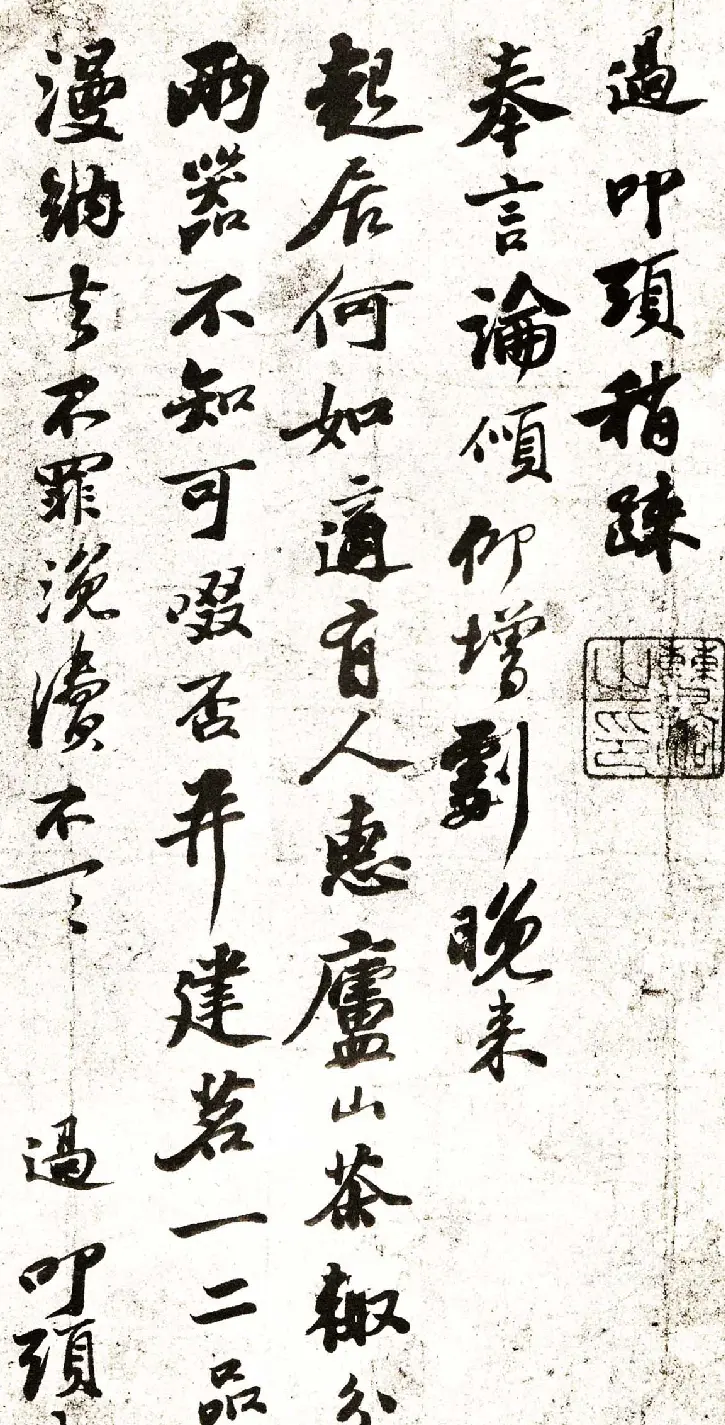 過叩頭稍疎
奉言論傾仰增劇晚来
起居何如適有人惠廬山茶輙分
兩器不知可啜否并建茗一二品
漫納去不罪浼瀆不一〻
過叩頭